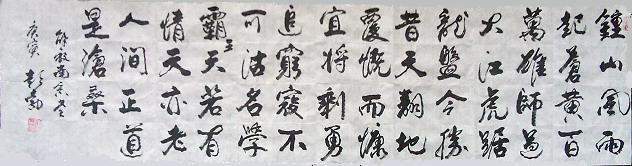 鐘山風雨
起蒼黃百
萬雄師過
大江虎踞
龍盤今勝
昔天翻地
覆慨而慷
宜將剩勇
追窮寇不
可沽名學
霸王天若有
情天亦老
人間正道
是滄桑
解放南京
庚寅